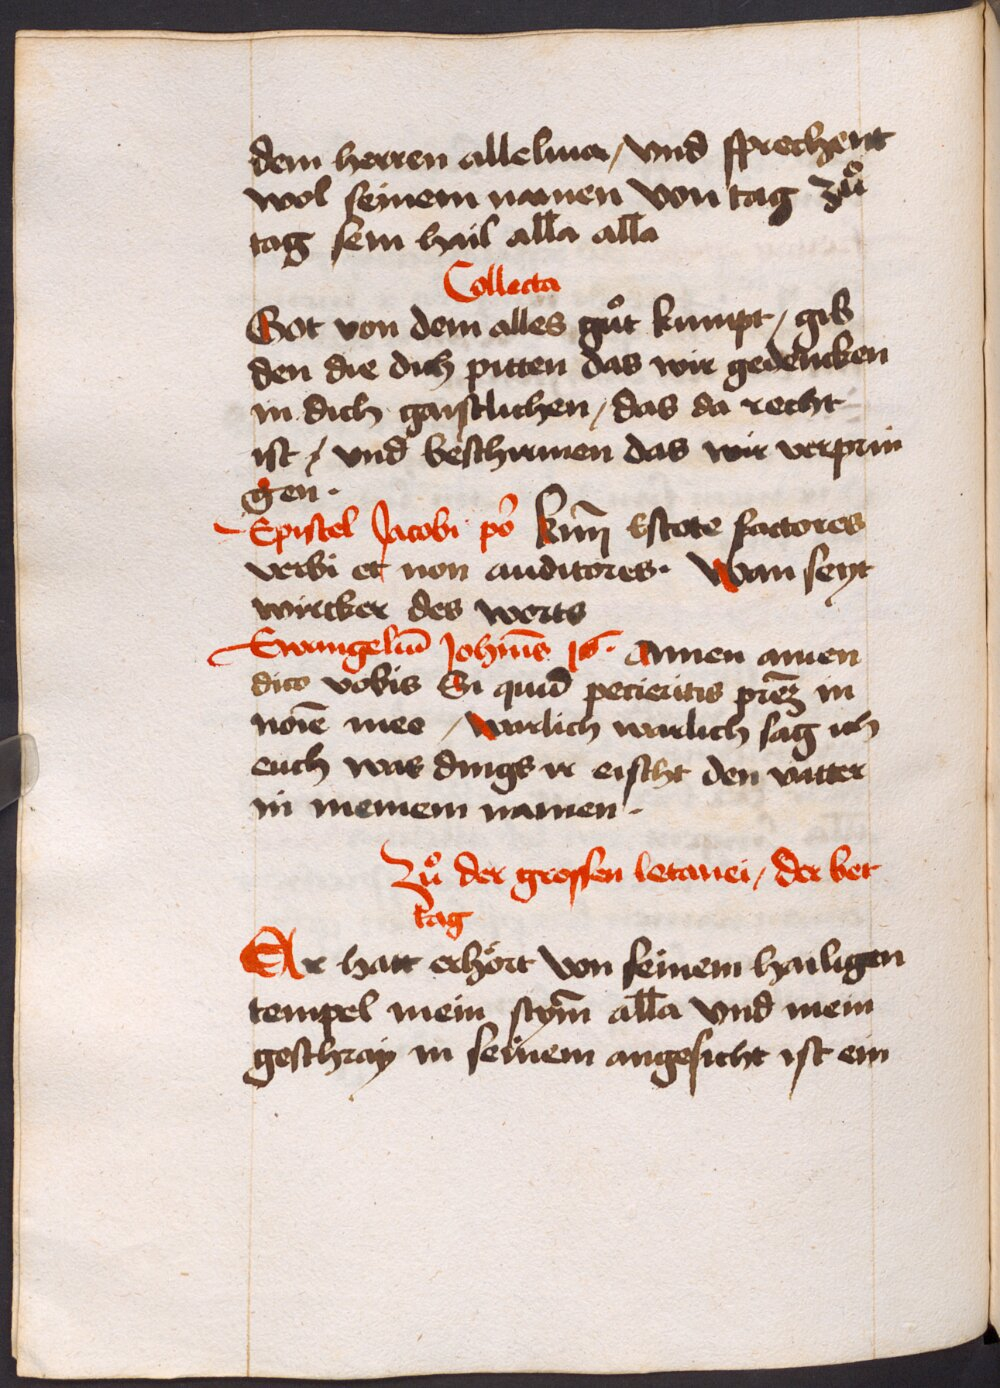 dem herren alleluia / vnd sprechent
wol seinem namen von tag zuͦ
tag sein hail alĺa alĺa
Collecta
Got von dem alles guͦt kumpt / gib
den die dich pitten das wir gedencken
in dich gaistlichen / das da recht
ist / vnd beschirmen das wir verprin
gen ·
Epistel Jacobi pͦ Estote factores
verbi et non auditores · Wan seyt
wircker des worts
Ewangeliū Joh̄nis 16 · Amen amen
dico vobis Si quid petieritis pr̄eʒ in
noīe meo / Warlich warlich sag ich
euch was dings ir eischt den vatter
in meinem namen ·
Zuͦ der grossen letanei / der bet
tag
Er hatt erhört von seinem hailigen
tempel mein stym̄ alĺa vnd mein
geschray in seinem angesicht ist ein